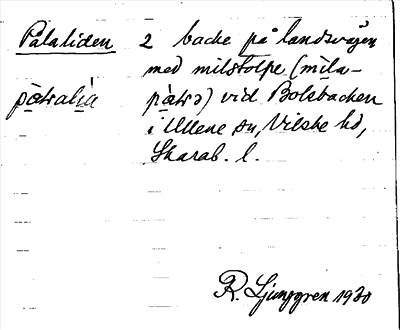 Pålaliden 2 backe på landsvägen
med milstolpe (mīla-
pàtralìa pàtrə) vid Bolsbacken
i Ullene sn, Vilske hd,
Skarab. l.
R. Ljunggren 1930